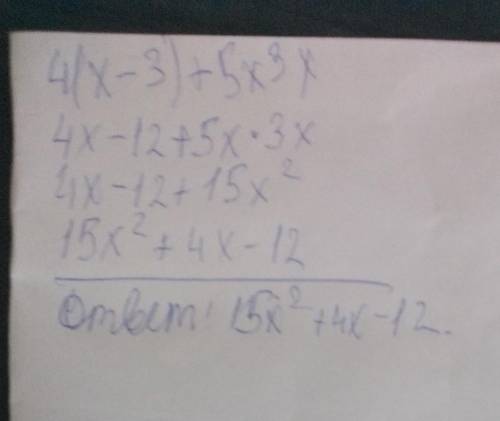 4(x-3)+5x3x
4x-12+5x·3x
4x-12+15x²
15x²+4x-12
Ответ: 15x²+4x-12.